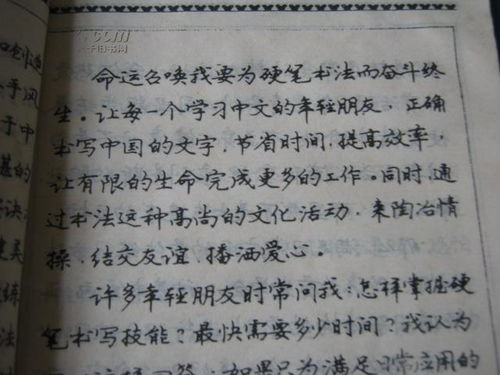 命运召唤我要为硬笔书法而奋斗终
生。让每一个学习中文的年轻朋友,正确
书写中国的文字,节省时间,提高效率,
让有限的生命完成更多的工作。同时,通
过书法这种高尚的文化活动,来陶冶情
操,结交友谊,播洒爱心。
许多年轻朋友时常问我:怎样掌握硬
笔书写技能?最快需要多少时间?我认为
如果只为满足日常应用的